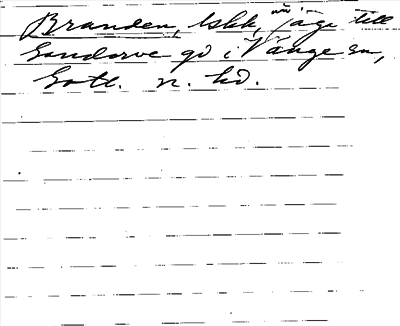 Branden, lskk, äge till
Sandarve gd i Vänge sn,
Gotl. n. hd.